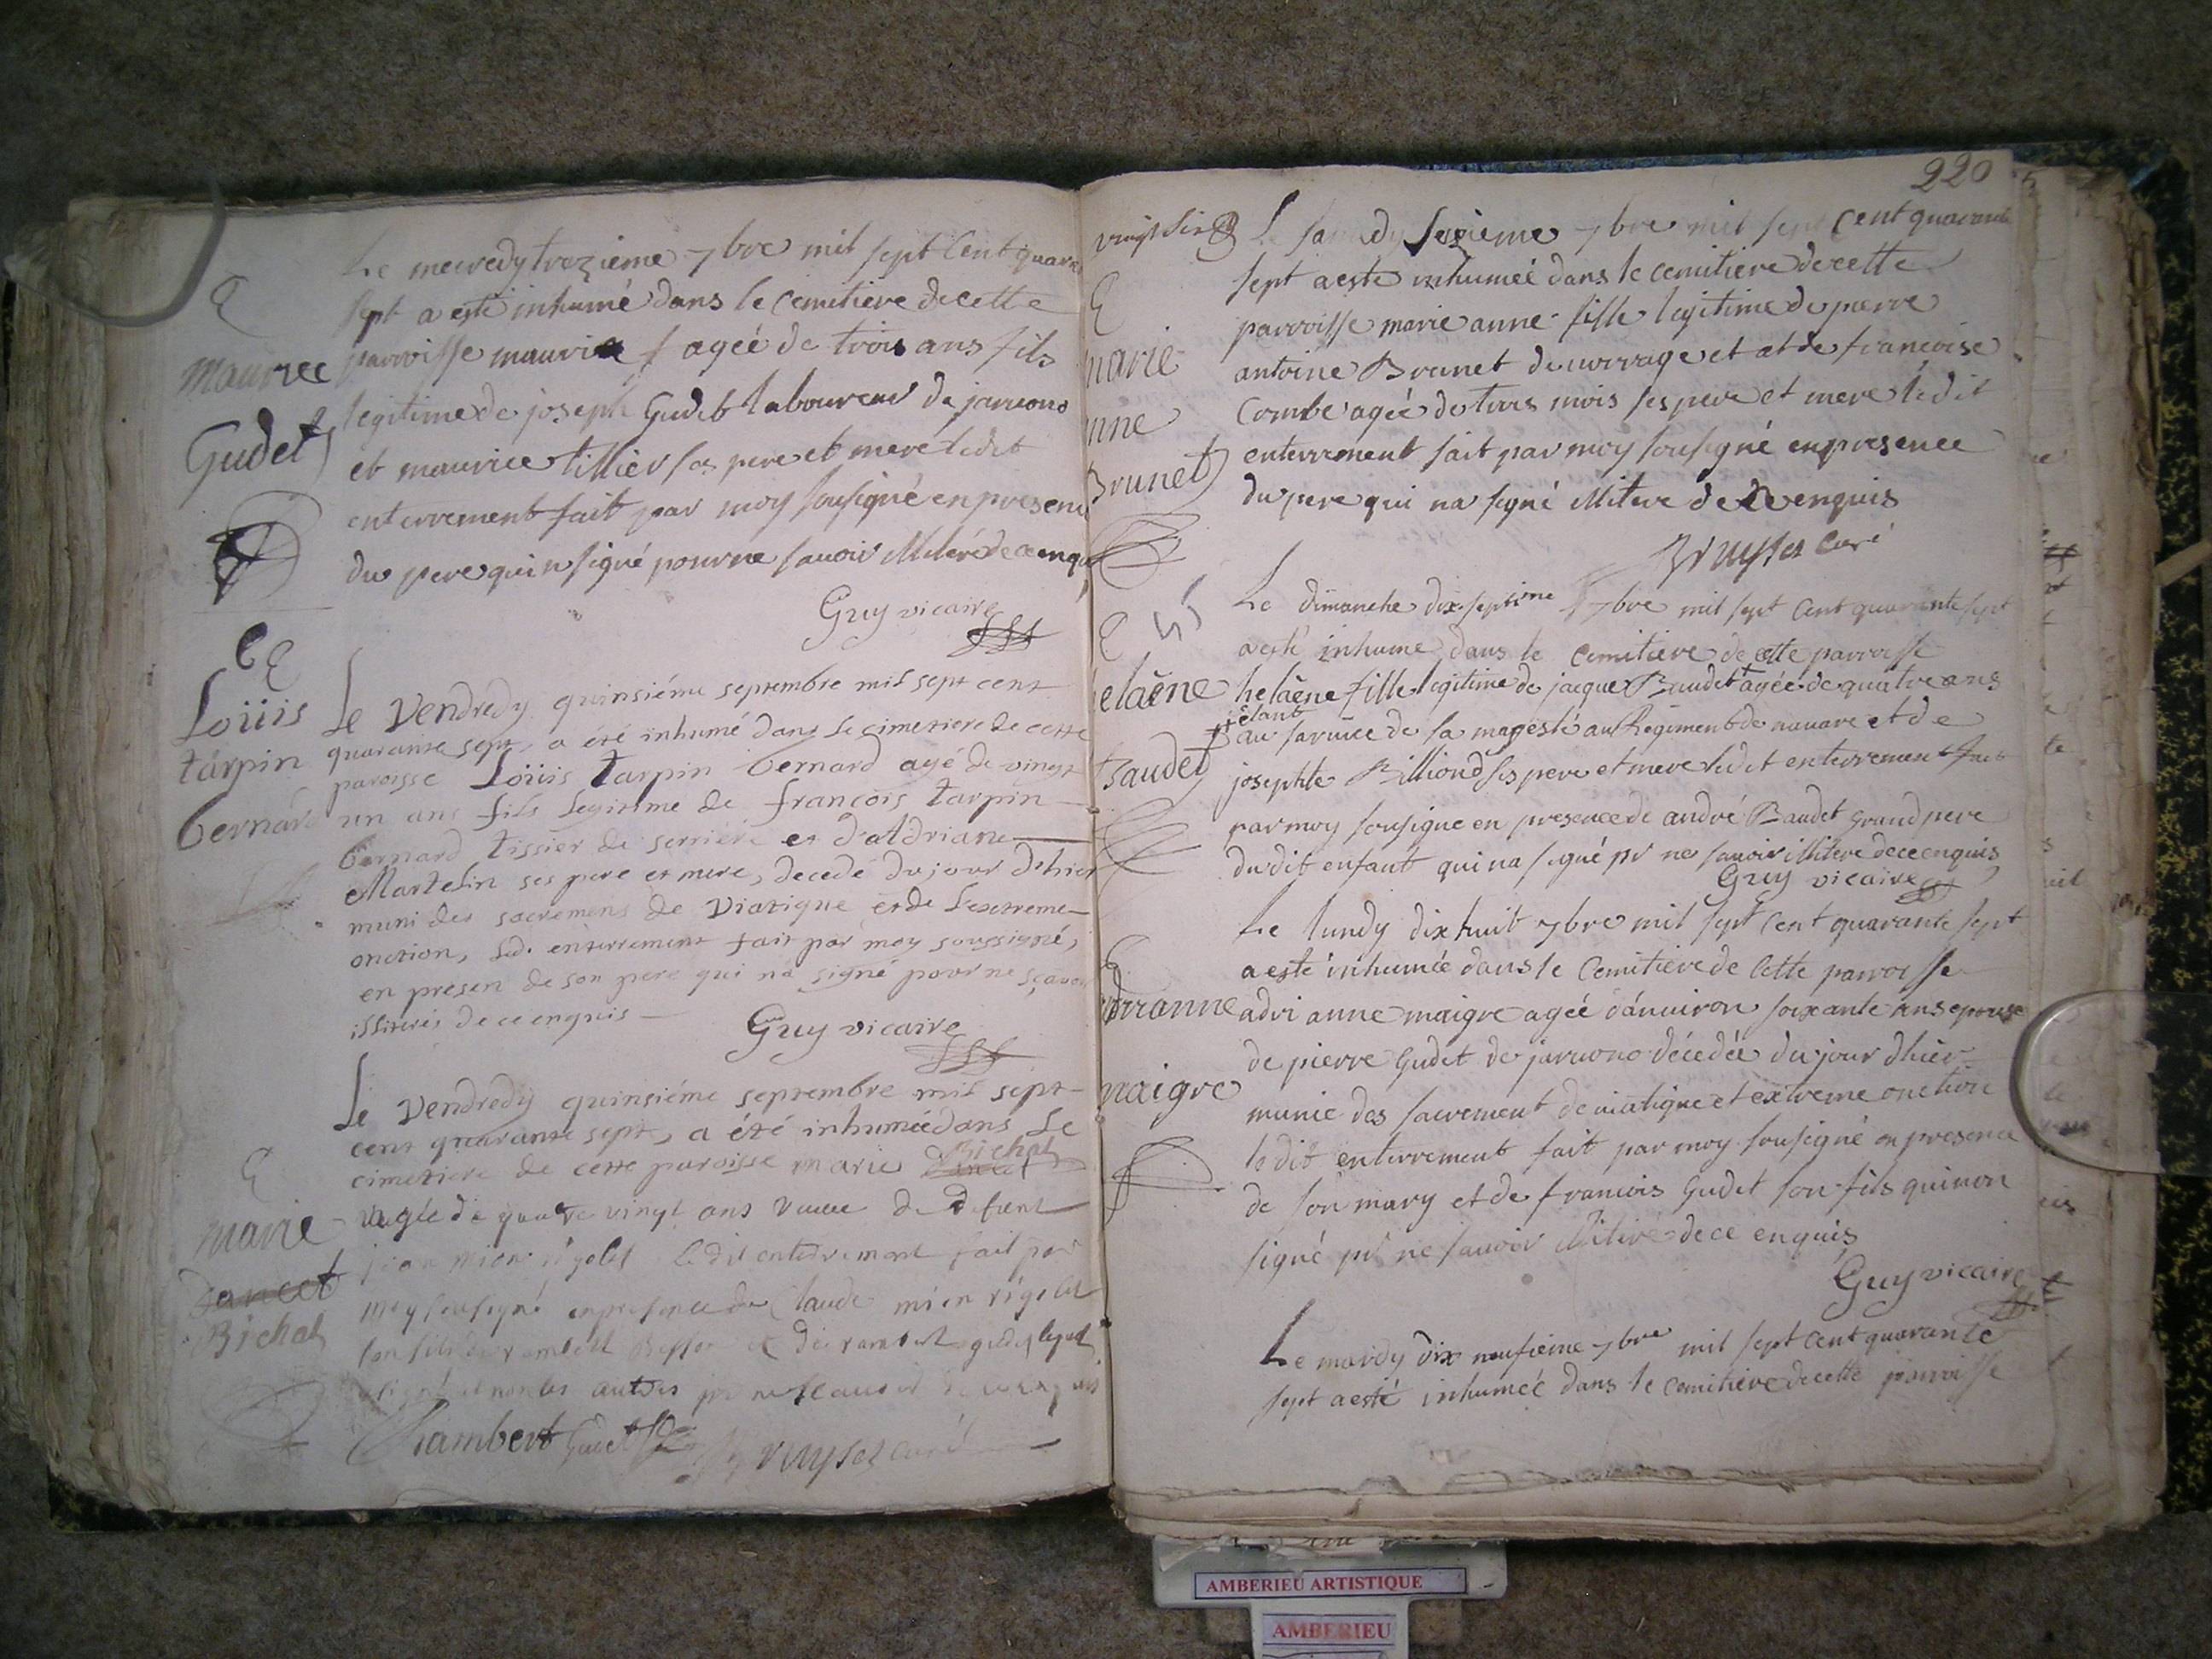 Le mecredy trezieme 7bre mil sept Cent quara
sept a esté inhumé dans le Cemitiere de cette
Maurice
parroisse maurice agéé de trois ans fils
Gudet
legitime de joseph Gudet laboureur de jarvono
et maurice tillier ses pere et mere ledit
enterrement fait par moy sousigné en presen
du pere qui n signé pour ne savoir Militeré de ce enqu
Guy vicaire
Loüis
tarpin
bernard
Le Vendredy quinsiéme septembre mil sept cent
quarante sept, a été inhumé dans le cimetiere de cette
paroisse Loüis tarpin bernard agé de vingt
un ans fils legitime de françois tarpin
bernard tissier de serriere et d'Adriane
Martelin ses pere et mere, decedé du jour d'hier
muni des sacremens de Viatique et de L'extreme
onction, led. enterrement fait par moy soussigné,
en presen de son pere qui n'a signé pour ne sçavoir
illiterés de ce enquis
Guy vicaire
Le Vendredy quinsiéme septembre mil sept
cent quarante sept, a été inhumée dans Le
cimetiere de cette paroisse marie Bichat
marie
Dancet
Bichat
agéé de quatre vingt ans veuve de defunt
jean mion rigolet ledit enterrement fait par
moy sousigné en presence de Claude mion rigolet
son fils de rambert et de rambert gudet lequel
a signé et non les autres pr ne scavoir de ce enquis
Rambert Gudet
Bruyset curé
220
vingt six
Le samedy sezieme 7bre mil sept Cent quarante
sept a esté inhumée dans le cemitiere de cette
parroisse marie anne fille legitime de pierre
marie
anne
Brunet
antoine Brunet de et de francoise
Combe agéé de trois mois ses pere et mere ledit
enterrement fait par moy sousigné en presence
du pere qui na signé illitere de ce enquis
Bruyset Curé
Le dimanche dix septime 7bre mil sept Cent quarante sept
a esté inhume dans le Cemitiere de cette parroisse
elaène
Baudet
helaène fille legitime de jacque Baudet agée de quatre ans
etant
au service de sa magesté au Regiment de navare et de
josephte Billiond ses pere et mere ledit enterrement fait
par moy sousigné en presence de andré Baudet grand pere
du dit enfant qui na signé pr ne savoir illitere de ce enquis
Guy vicaire
Le lundy dix huit 7bre mil sept Cent quarante sept
a esté inhumée dans le Cemitiere de Cette parroisse
drianne
maigre
adri anne maigre agéé d'anuiron soixante ans epouse
de pierre Gudet de jarvono décedée du jour dhier
munie des sacrement de viatique et extreme onction
le dit enterrement fait par moy sousigné en presence
de son mary et de francois Gudet son fils qui non
signé pr ne savoir illiteré de ce enquis
Guy vicaire
Le mardy dix neufieme 7bre mil sept Cent quarante
sept a esté inhumée dans le cemitiere de cette parroisse
AMBERIEU ARTISTIQUE
AMBERIEU